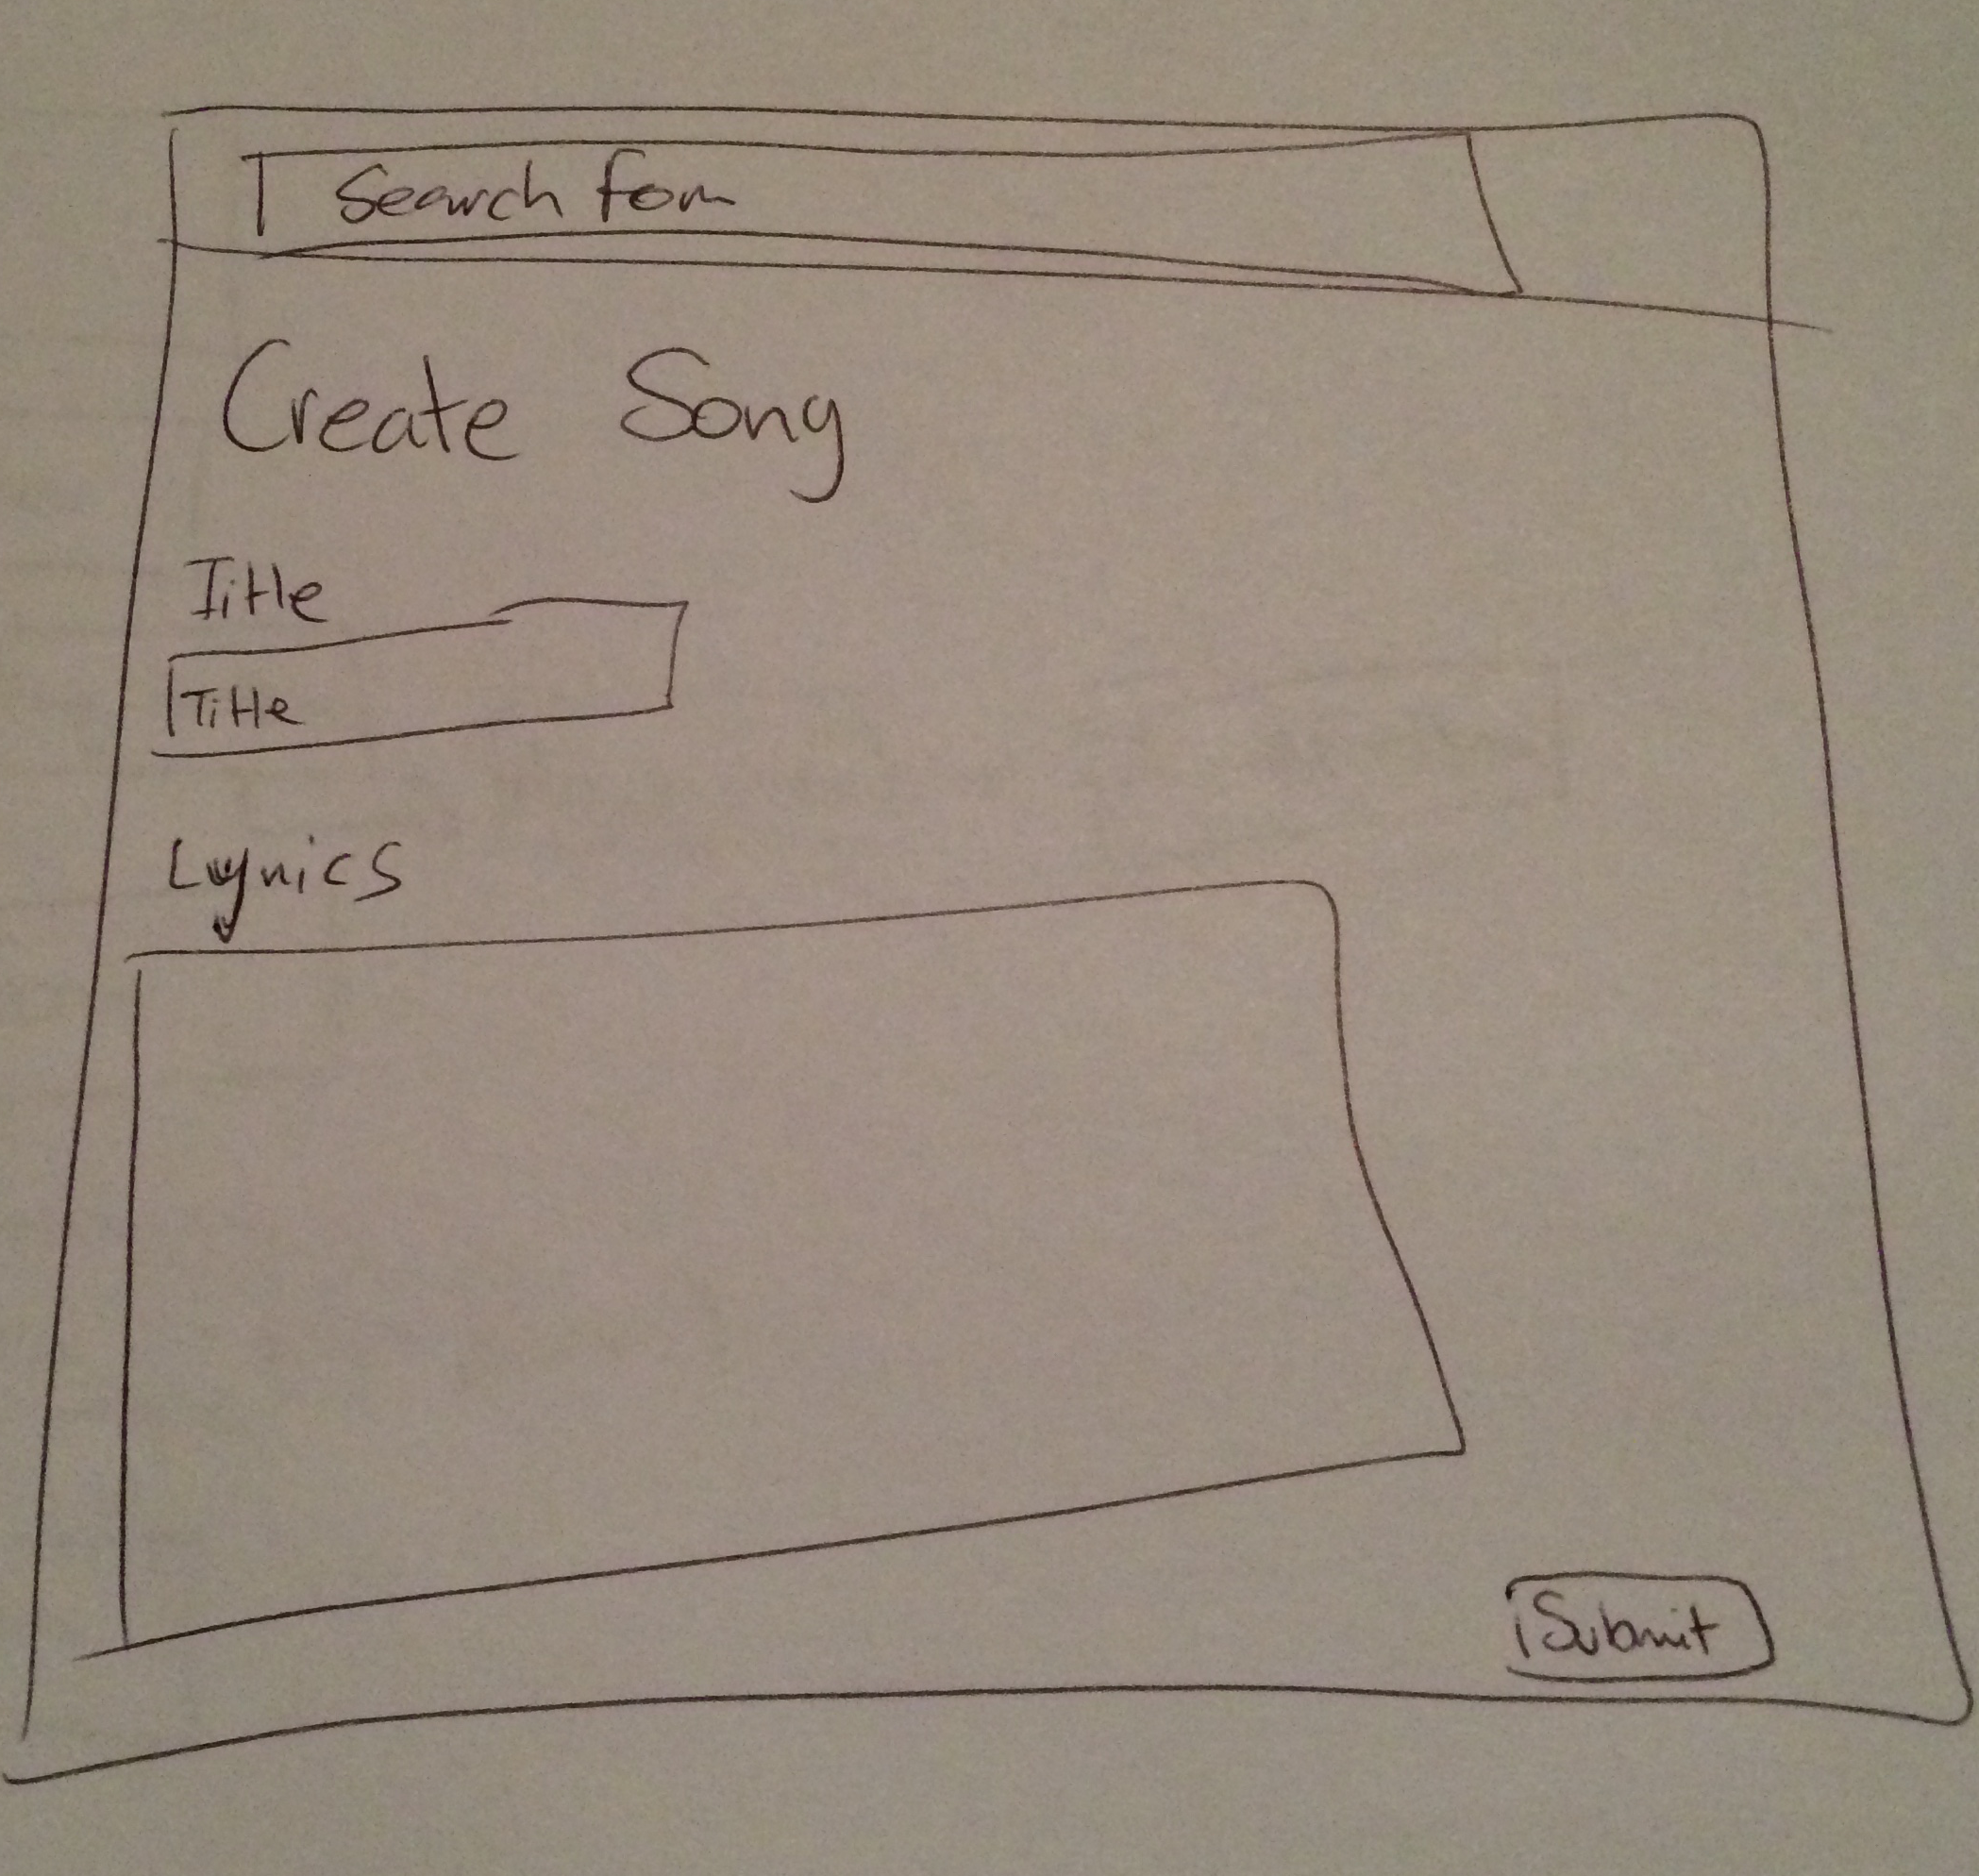 Search Form
Create Song
Title
Title
Lyrics
Submit